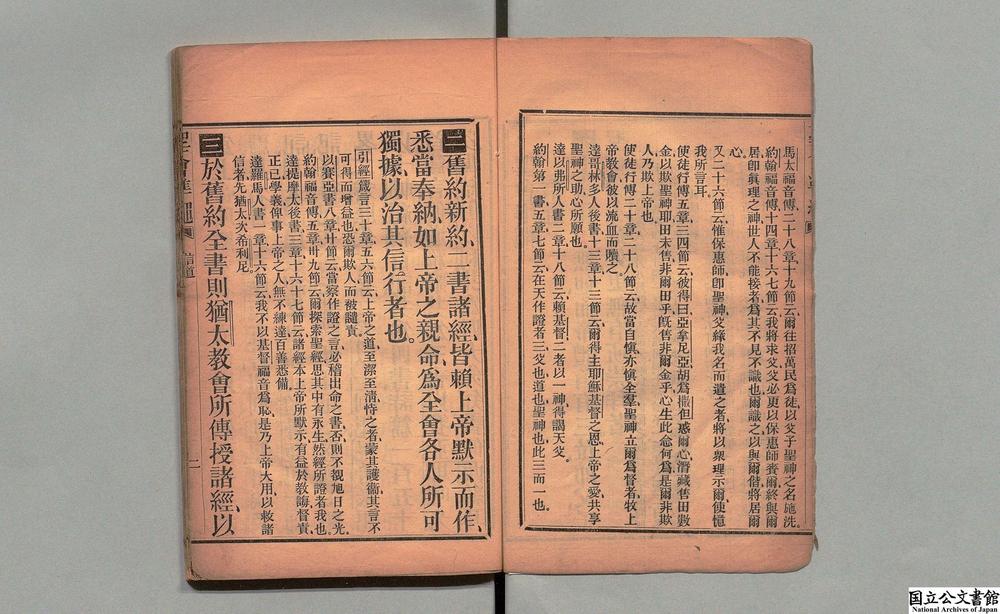 馬太福音傳二十八章十九節云爾往招萬民爲徒以父子聖神之名施洗、
約翰福音傳十四章十六七節云我將求父父必更以保惠師賚爾終與爾
居卽眞理之神世人不能接者爲其不見不識也爾識之以與爾偕將居爾
心。
又二十六節云惟保惠師卽聖神父緣我名而遣之者將以衆理示爾使憶
我所言耳。
使徒行傳五章三四節云彼得曰亞拿尼亞胡爲撒但惑爾心潛藏售田數
金以欺聖神耶田未售非爾田乎旣售非爾金乎心生此念何爲是爾非欺
人乃欺上帝也
使徒行傳二十章二十八節云故當自愼亦愼全羣聖神立爾爲督者牧上
帝敎會彼以流血而贖之
達哥林多人後書十三章十三節云爾得主耶穌基督之恩上帝之愛共享
聖神之助心所願也
達以弗所人書二章十八節云賴基督二者以一神得謁天父。
約翰第一書五章七節云在天作證者三父也道也聖神也此三而一也。
二 舊約新約、二書諸經、皆賴上帝默示而作、
悉當奉納、如上帝之親命、爲全會各人所可
獨據、以治其信行者也。
引經箴言三十章五六節云上帝之道至潔至淸恃之者蒙其護衞其言不
可得而增益也恐爾欺人而被譴責
以賽亞書八章廿節云當察作證之言必稽出命之書否則不覩旭日之光、
約翰福音傳五章卅九節云爾探索聖經思其中有永生然經所證者我也、
達提摩太後書三章十六十七節云諸經本上帝所默示有益於敎誨督責
正己學義俾事上帝之人無不練達百善悉備、
達羅馬人書一章十六節云我不以基督福音爲恥是乃上帝大用以救諸
信者先猶太次希利尼
三 於舊約全書、則猶太敎會所傳授諸經、以
信道
二
国立公文書館
National Archives of Japan